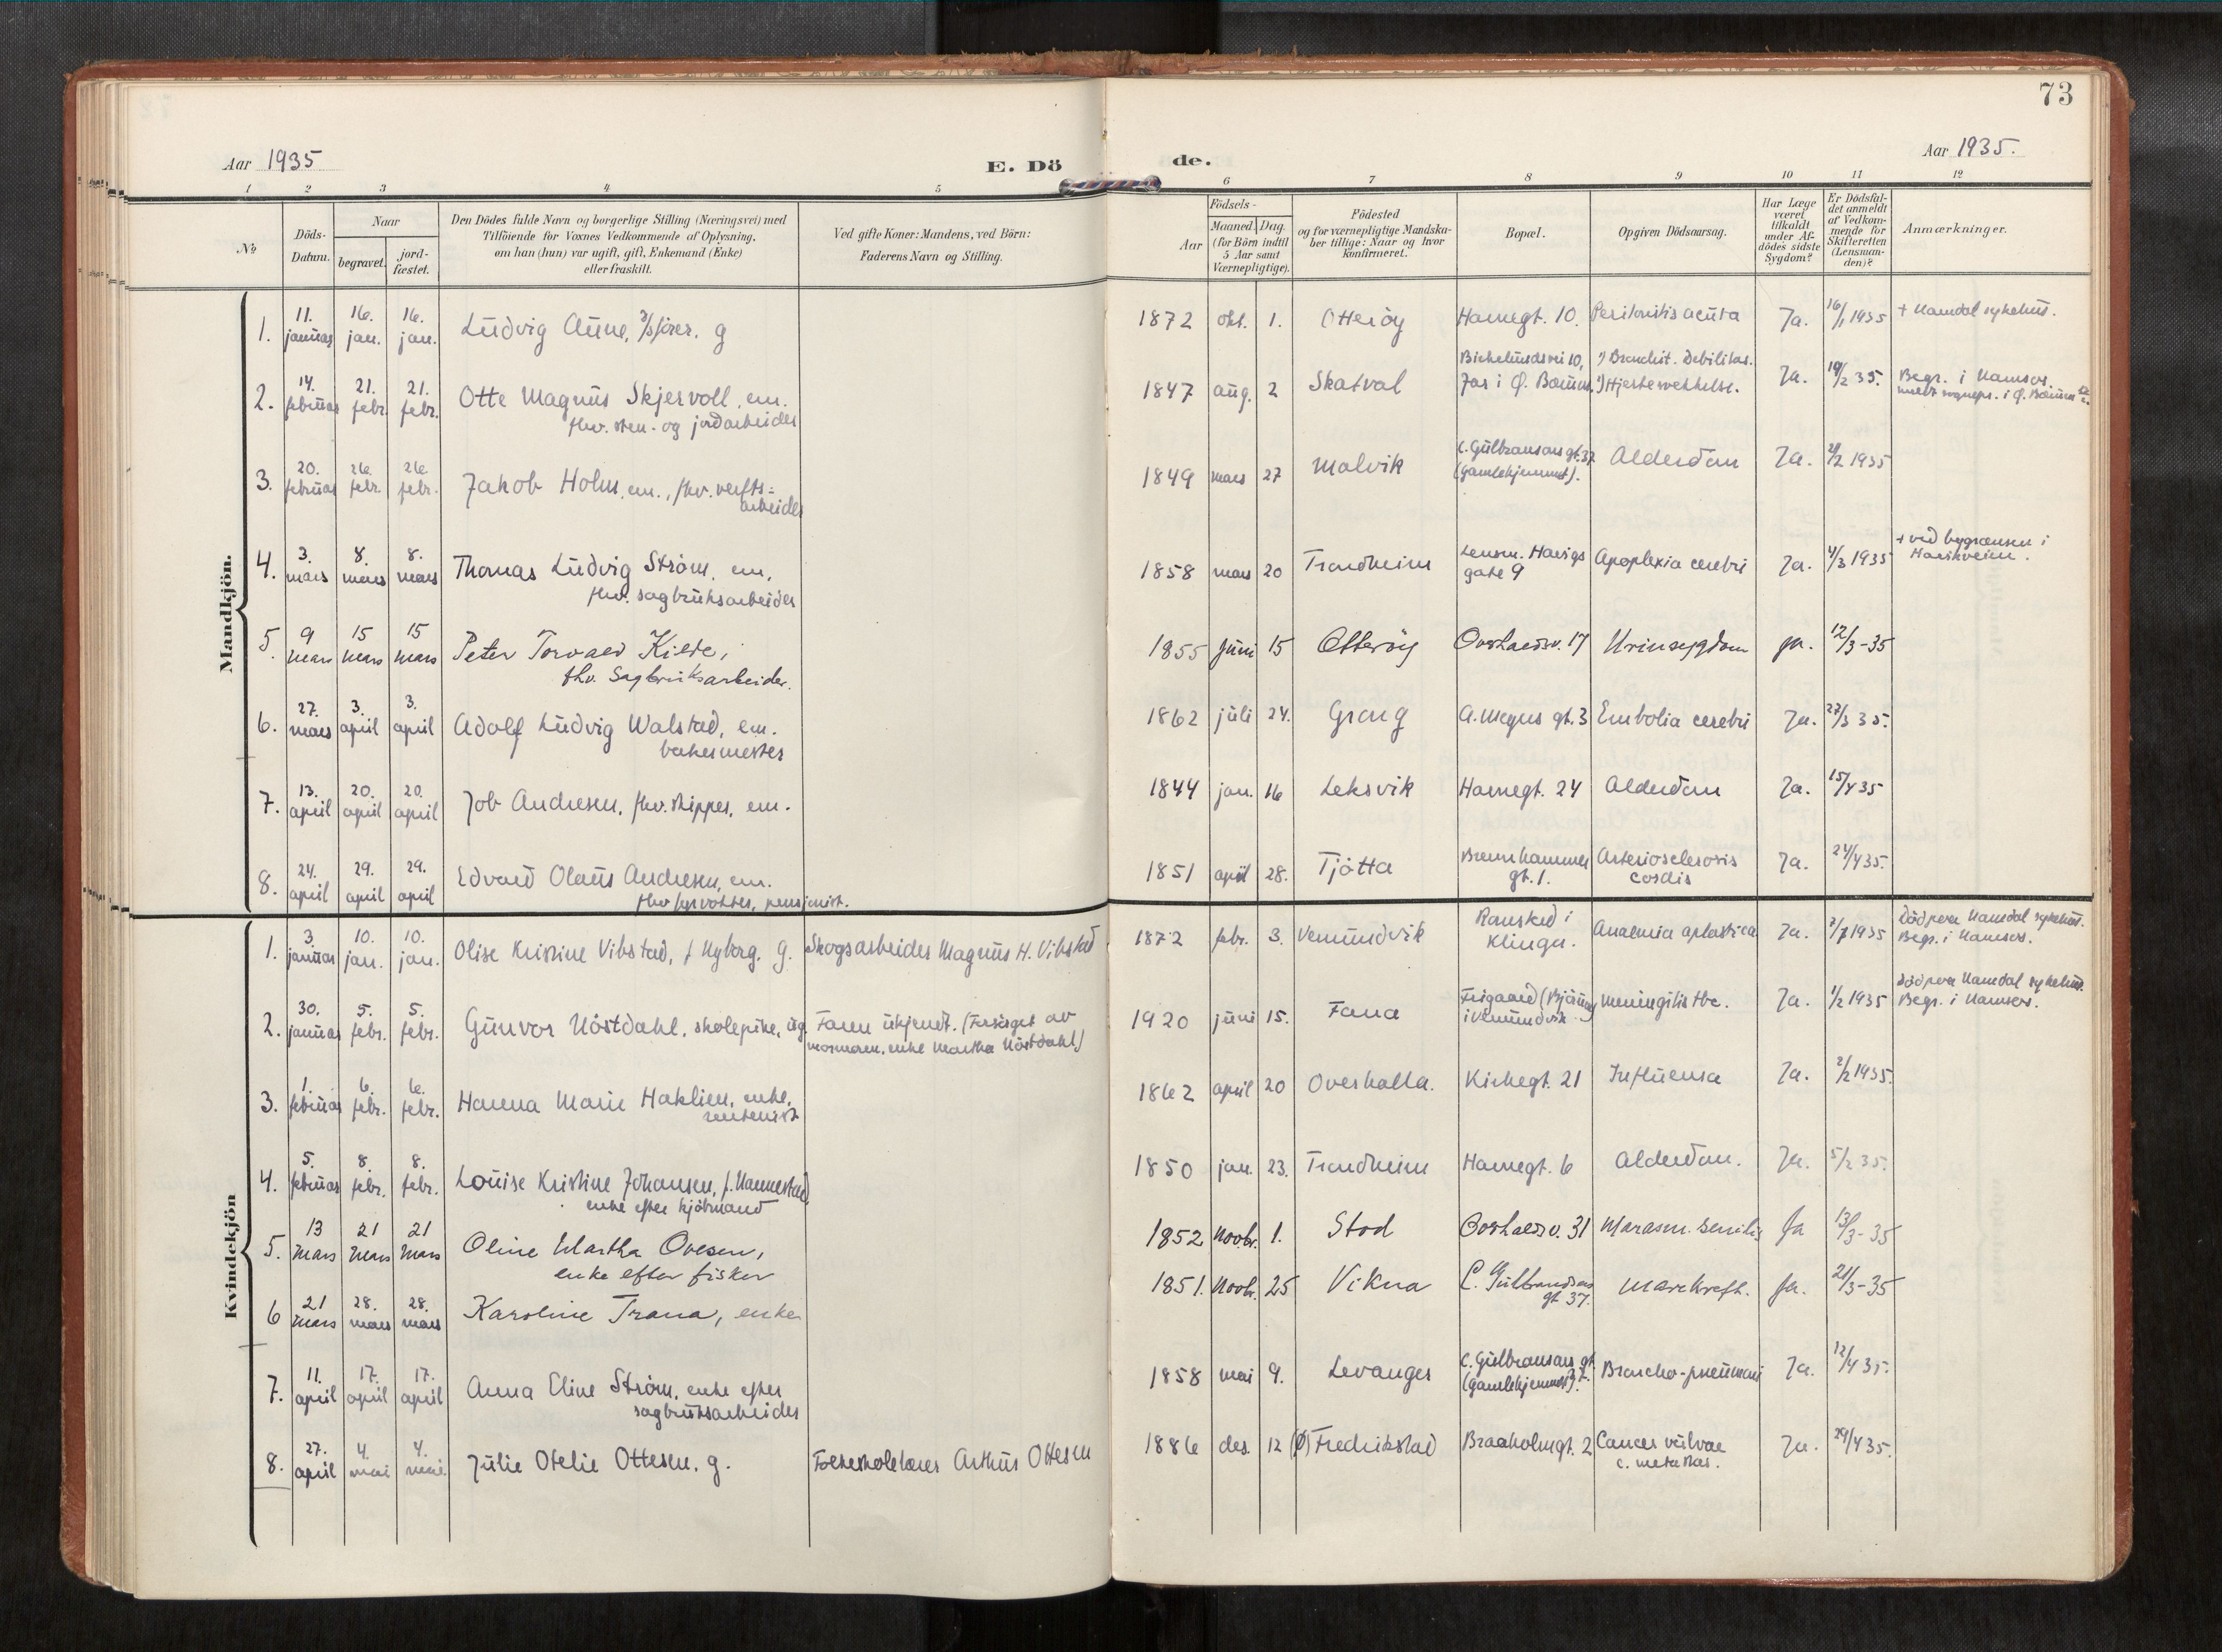 73
Aar 1935
E. Dö
de.
Aar 1935.
1 2 3 4 5 6 7 8 9 10 11 12
No.
Döds-
Datum.
Naar
begravet.
jord-
fæstet.
Den Dödes fulde Navn og borgerlige Stilling (Næringsvei) med
Tilföiende for Voxnes Vedkommende af Oplysning,
om han (hun) var ugift, gift, Enkemand (Enke)
eller fraskilt.
Ved gifte Koner: Mandens, ved Börn:
Faderens Navn og Stilling.
Födsels-
Aar
Maaned. Dag.
(for Börn indtil
5 Aar samt
Værnepligtige).
Födested
og for værnepligtige Mandska-
ber tillige: Naar og hvor
konfirmeret.
Bopæl.
Opgiven Dödsaarsag.
Har Læge
været
tilkaldt
under Af-
dödes sidste
Sygdom?
Er Dödsfal-
det anmeldt
af Vedkom-
mende for
Skifteretten
(Lensman-
den)?
Anmærkninger.
Mandkjön.
1. 11. januar 16. jan. 16. jan. Ludvig Aune, g 1872 okt. 1. Otterøy Havnegt. 10. Peritonitis acuta Ja. 16/1 1935 + Namdal sykehus.
2. 14. februar 21. febr. 21. febr. Otte Magnus Skjervoll, em.
fhv. sten- og jordarbeider
1847 aug. 2 Skatval Birkelundsvei 10, 1) Bronchit. Debilitas.
i Ø. Bærum. 2) Hjertesvekkelse. Ja. 19/2 35. Begr. i Namsos.
i Ø. Bærum
3. 20. februar 26. febr. 26. febr. Jakob Holm, em., fhv. verfts=
arbeider
1849 mars 27 Malvik C. Gulbransons gt. 37
(Gamlehjemmet). Alderdom Ja. 2/2 1935
4. 3. mars 8. mars 8. mars Thomas Ludvig Strøm, em,
fhv. sagbruksarbeider
1858 mars 20 Trondheim Lensm. Havigs
gate 9 Apoplexia cerebri Ja. 4/3 1935 + ved bygrænsen i
5. 9 mars 15 mars 15 mars Peter Torvald Kilde,
fhv. Sagbruksarbeider.
1855 juni 15 Otterøy Overhaldsv. 17 Urinsygdom ja. 12/3-35
6. 27. mars 3. april 3. april Adolf Ludvig Walstad, em.
bakermester
1862 juli 24. Grong A. Meyers gt. 3 Embolia cerebri Ja. 27/3 35.
7. 13. april 20. april 20. april Job Andresen, fhv. skipper, em.
1844 jan. 16 Leksvik Havnegt. 24 Alderdom Ja. 15/4 35
8. 24. april 29. april 29. april Edvard Olaus Andresen, em.
fhv. fyrvokter, pensjonist.
1851 april 28. Tjøtta Brennhammer
gt. 1. Arteriosclerosis
cordis Ja. 24/4 35.
Kvindekjön
1. 3 januar 10. jan. 10. jan. Olise Kristine Vibstad, f. Nyborg. g. Skogsarbeider Magnus H. Vibstad 1872 febr. 3. Vemundvik
Klingen. Anaemia aplastica Ja. 7/1 1935 Död paa Namdal sykehus.
Begr. i Namsos.
2. 30. januar 5. febr. 5. febr. Gunvor Nöstdahl, skolepike, ug. Faren ukjendt. (Forsörget av
mormoren, enke Martha Nöstdahl)
1920 juni 15. Fana Frigaard (Bjørum)
i Vemundvik. Meningitis tbc. Ja. 1/2 1935 Död paa Namdal sykehus.
Begr. i Namsos.
3. 1. februar 6. febr. 6. febr. Hanna Marie Haklien, enke,
rentenist
1862 april 20 Overhalla. Kirkegt. 21 Influensa Ja. 2/2 1935.
4. 5. februar 8. febr. 8. febr. Louise Kristine Johansen, f. Hannestad
enke efter kjöbmand
1850 jan. 23. Trondheim Havnegt. 6 Alderdom. Ja. 5/2 35.
5. 13 mars 21 mars 21 mars Oline Martha Ovesen,
enke efter fisker
1852 Novbr. 1. Stod Overhaldsv. 31 Marasm. senilis ja 13/3-35
6 21 mars 28. mars 28. mars Karoline Trana, enke
1851. Novbr. 25 Vikna C. Gulbransons
gt 37. Mavekreft. ja. 21/3-35
7. 11. april 17. april 17. april Anna Eline Strøm, enke efter
sagbruksarbeider
1858 mai 9. Levanger C. Gulbransons gt.
37. (Gamlehjemmet). Broncho-pneumoni Ja. 12/4 35.
8. 27. april 4. mai 4. mai Julie Otelie Ottesen, g. Folkeskolelærer Arthur Ottesen
1886 des. 12 (Ø) Fredrikstad Braaholmgt. 2 Cancer vulvae
c. metastas. Ja. 29/4 35.